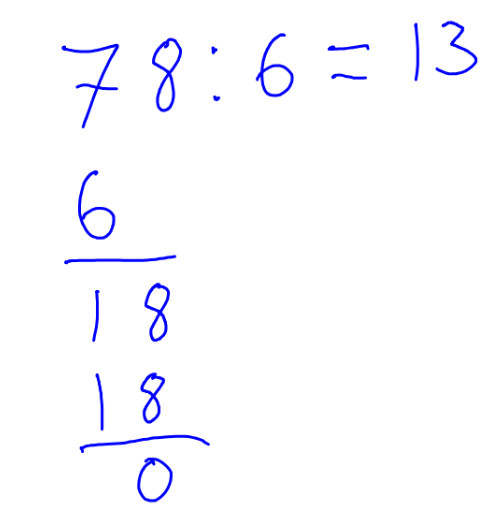 78:6=13
6
18
18
0